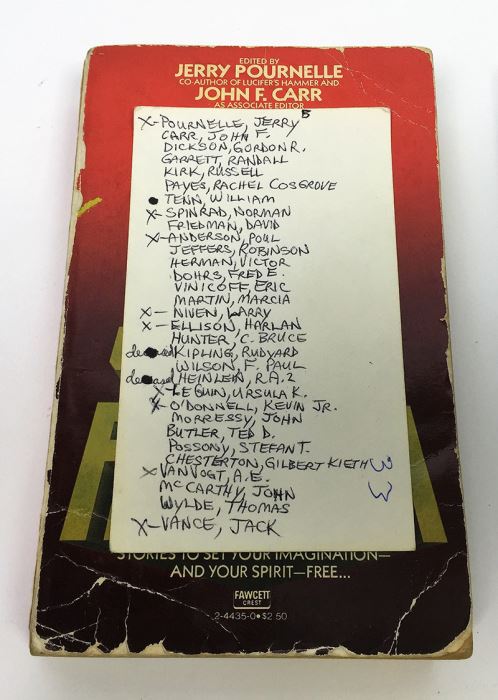 EDITED BY
JERRY POURNELLE
CO-AUTHOR OF LUCIFER'S HAMMER AND
JOHN F. CARR
AS ASSOCIATE EDITOR
X-POURNELLE, JERRY
CARR, JOHN F.
DICKSON, GORDON R.
GARRETT, RANDALL
KIRK, RUSSELL
PAYES, RACHEL COSGROVE
TENN, WILLIAM
X-SPINRAD, NORMAN
FRIEDMAN, DAVID
X-ANDERSON, POUL
JEFFERS, ROBINSON
HERMAN, VICTOR
DOHRS, FRED E.
VINICOFF, ERIC
MARTIN, MARCIA
X-NIVEN, LARRY
X-ELLISON, HARLAN
HUNTER, C. BRUCE
KIPLING, RUDYARD
WILSON, F. PAUL
HEINLEIN, R.A.
X-LEGUIN, URSULA K.
X-O'DONNELL, KEVIN JR.
MORRESSY, JOHN
BUTLER, TED D.
POSSONY, STEFAN T.
CHESTERTON, GILBERT KIETH
X VANVOGT, A.E.
MCCARTHY, JOHN
WYLDE, THOMAS
X-VANCE, JACK
STORIES TO SET YOUR IMAGINATION—
AND YOUR SPIRIT—FREE...
FAWCETT
CREST
2-4435-0•$2.50